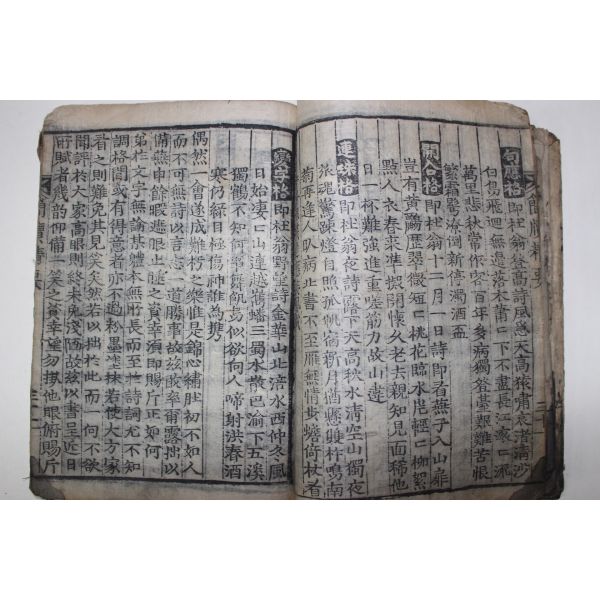 句應格即杜翁登高詩風急天高猿嘯哀渚清沙
白鳥飛廻無邊落木蕭〻下不盡長江〻來
萬里悲秋常作客百年多病獨登臺艱難苦恨
繁霜鬢潦倒新停濁酒盃
開合格即杜翁十二月一日詩即看燕子入山扉
豈有黃鸝歷翠微短〻桃花臨水岸輕〻柳絮
點人衣春來準擬開懷久老去親知見面稀他
日一杯難強進重嗟筋力故山違
連珠格即杜翁夜詩露下天高秋水清空山獨夜
旅魂驚踈燈自照孤帆宿新月猶懸雙杵鳴南
菊再逢人臥病北書不至雁無情步蟾倚杖看
變字格即杜翁野望詩金華山北涪水西仲冬風
日始凄〻山連越嶲蟠三蜀水散巴渝下五溪
獨鶴不知何事舞飢烏似欲向人啼射洪春酒
寒仍綠目極傷神誰為携
偶然一會遂成難朽之樂惟是錦心繡肚初不如人
而不可無詩以言志一道勝事故玆敢率爾露拙以
備無申餘暇遮眼止睡之資幸須即賜斤正如何
弟作文字無論詩基本無所長而至於詩詞尤不知
調格間或有得意者亦不過粉墨塗抹若使大方家
看之則難免其見笑矣然若以拙於此而一向不欲
聞評於大家高眼則終未免淺陋故玆以書呈近日
所賦者幾韻仰備一笑之資幸望勿他眼俯賜斤